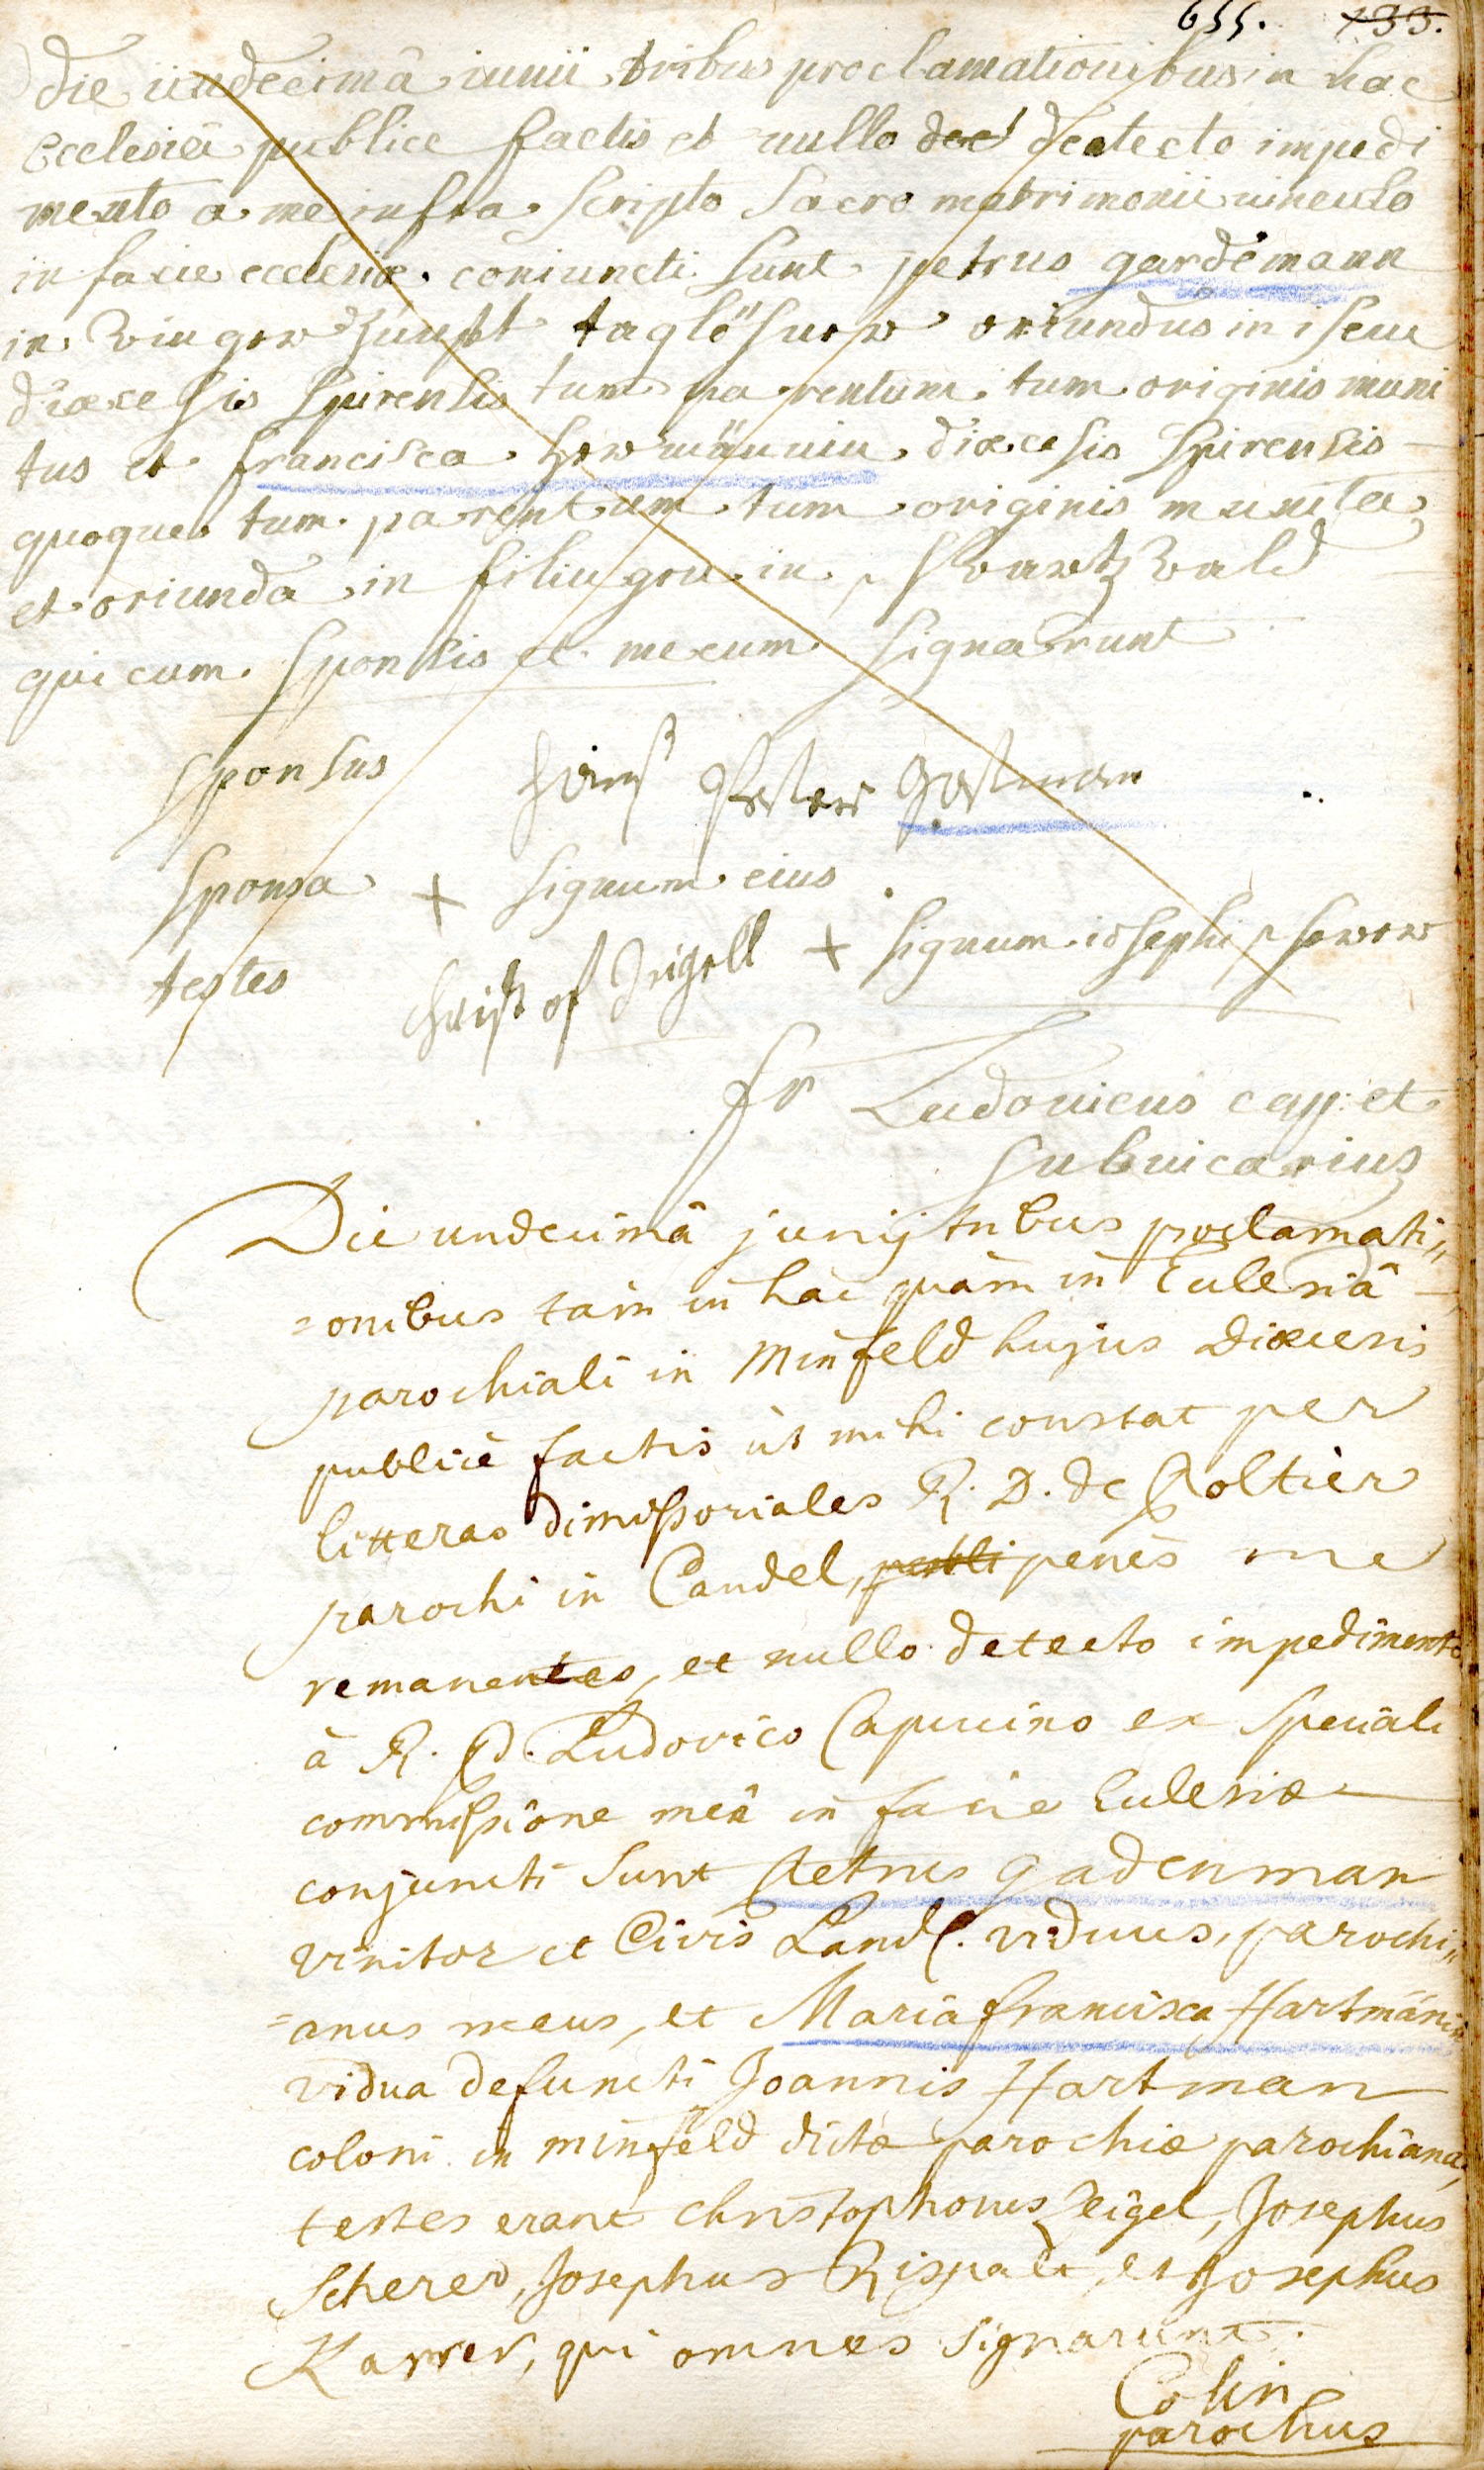 655. 133.
die undecimâ iunii tribus proclamationibus in hac
Ecclesiâ publice factis et nullo det deatecto impedi
mento a me infra scripto sacro matrimonii uinculo
in facie ecclesiæ coniuncti sunt petrus gardemann
in oriundus in
diœcesis spirensis tum parentum tum originis muni
tus et francisca diœcesis spirensis
quoque tum parentum tum originis munita
et oriunda in in
qui cum sponsis et mecum signarunt
sponsus
sponsa + signum eius
testes + signum iosephi
fr Ludouicus cap: et
subuicarius
Die undecimâ junij tribus proclamati„
=onibus tam in hac quàm in Ecclesiâ
parochiali in Minfeld hujus Diœcesis
publicè factis ùt mihi constat per
litteras dimissoriales R. D. de Poltier
parochi in Candel, publi penès me
remanentes, et nullo detecto impedimento
à R. P. Ludovico Capucino ex speciali
commissione meâ in facie Ecclesiæ
conjuncti sunt Petrus gadenman
vinitor et Civis Land. viduus, parochi„
=anus meus, et Maria francisca Hartmánin
vidua defuncti Joannis Hartman
coloni in minfeld dictæ parochiæ parochiana,
testes erant christophorus Zeigel, Josephus
Scherer, Josephus Rispalt et Josephus
Karrer, qui omnes signarunt.
Colin
parochus